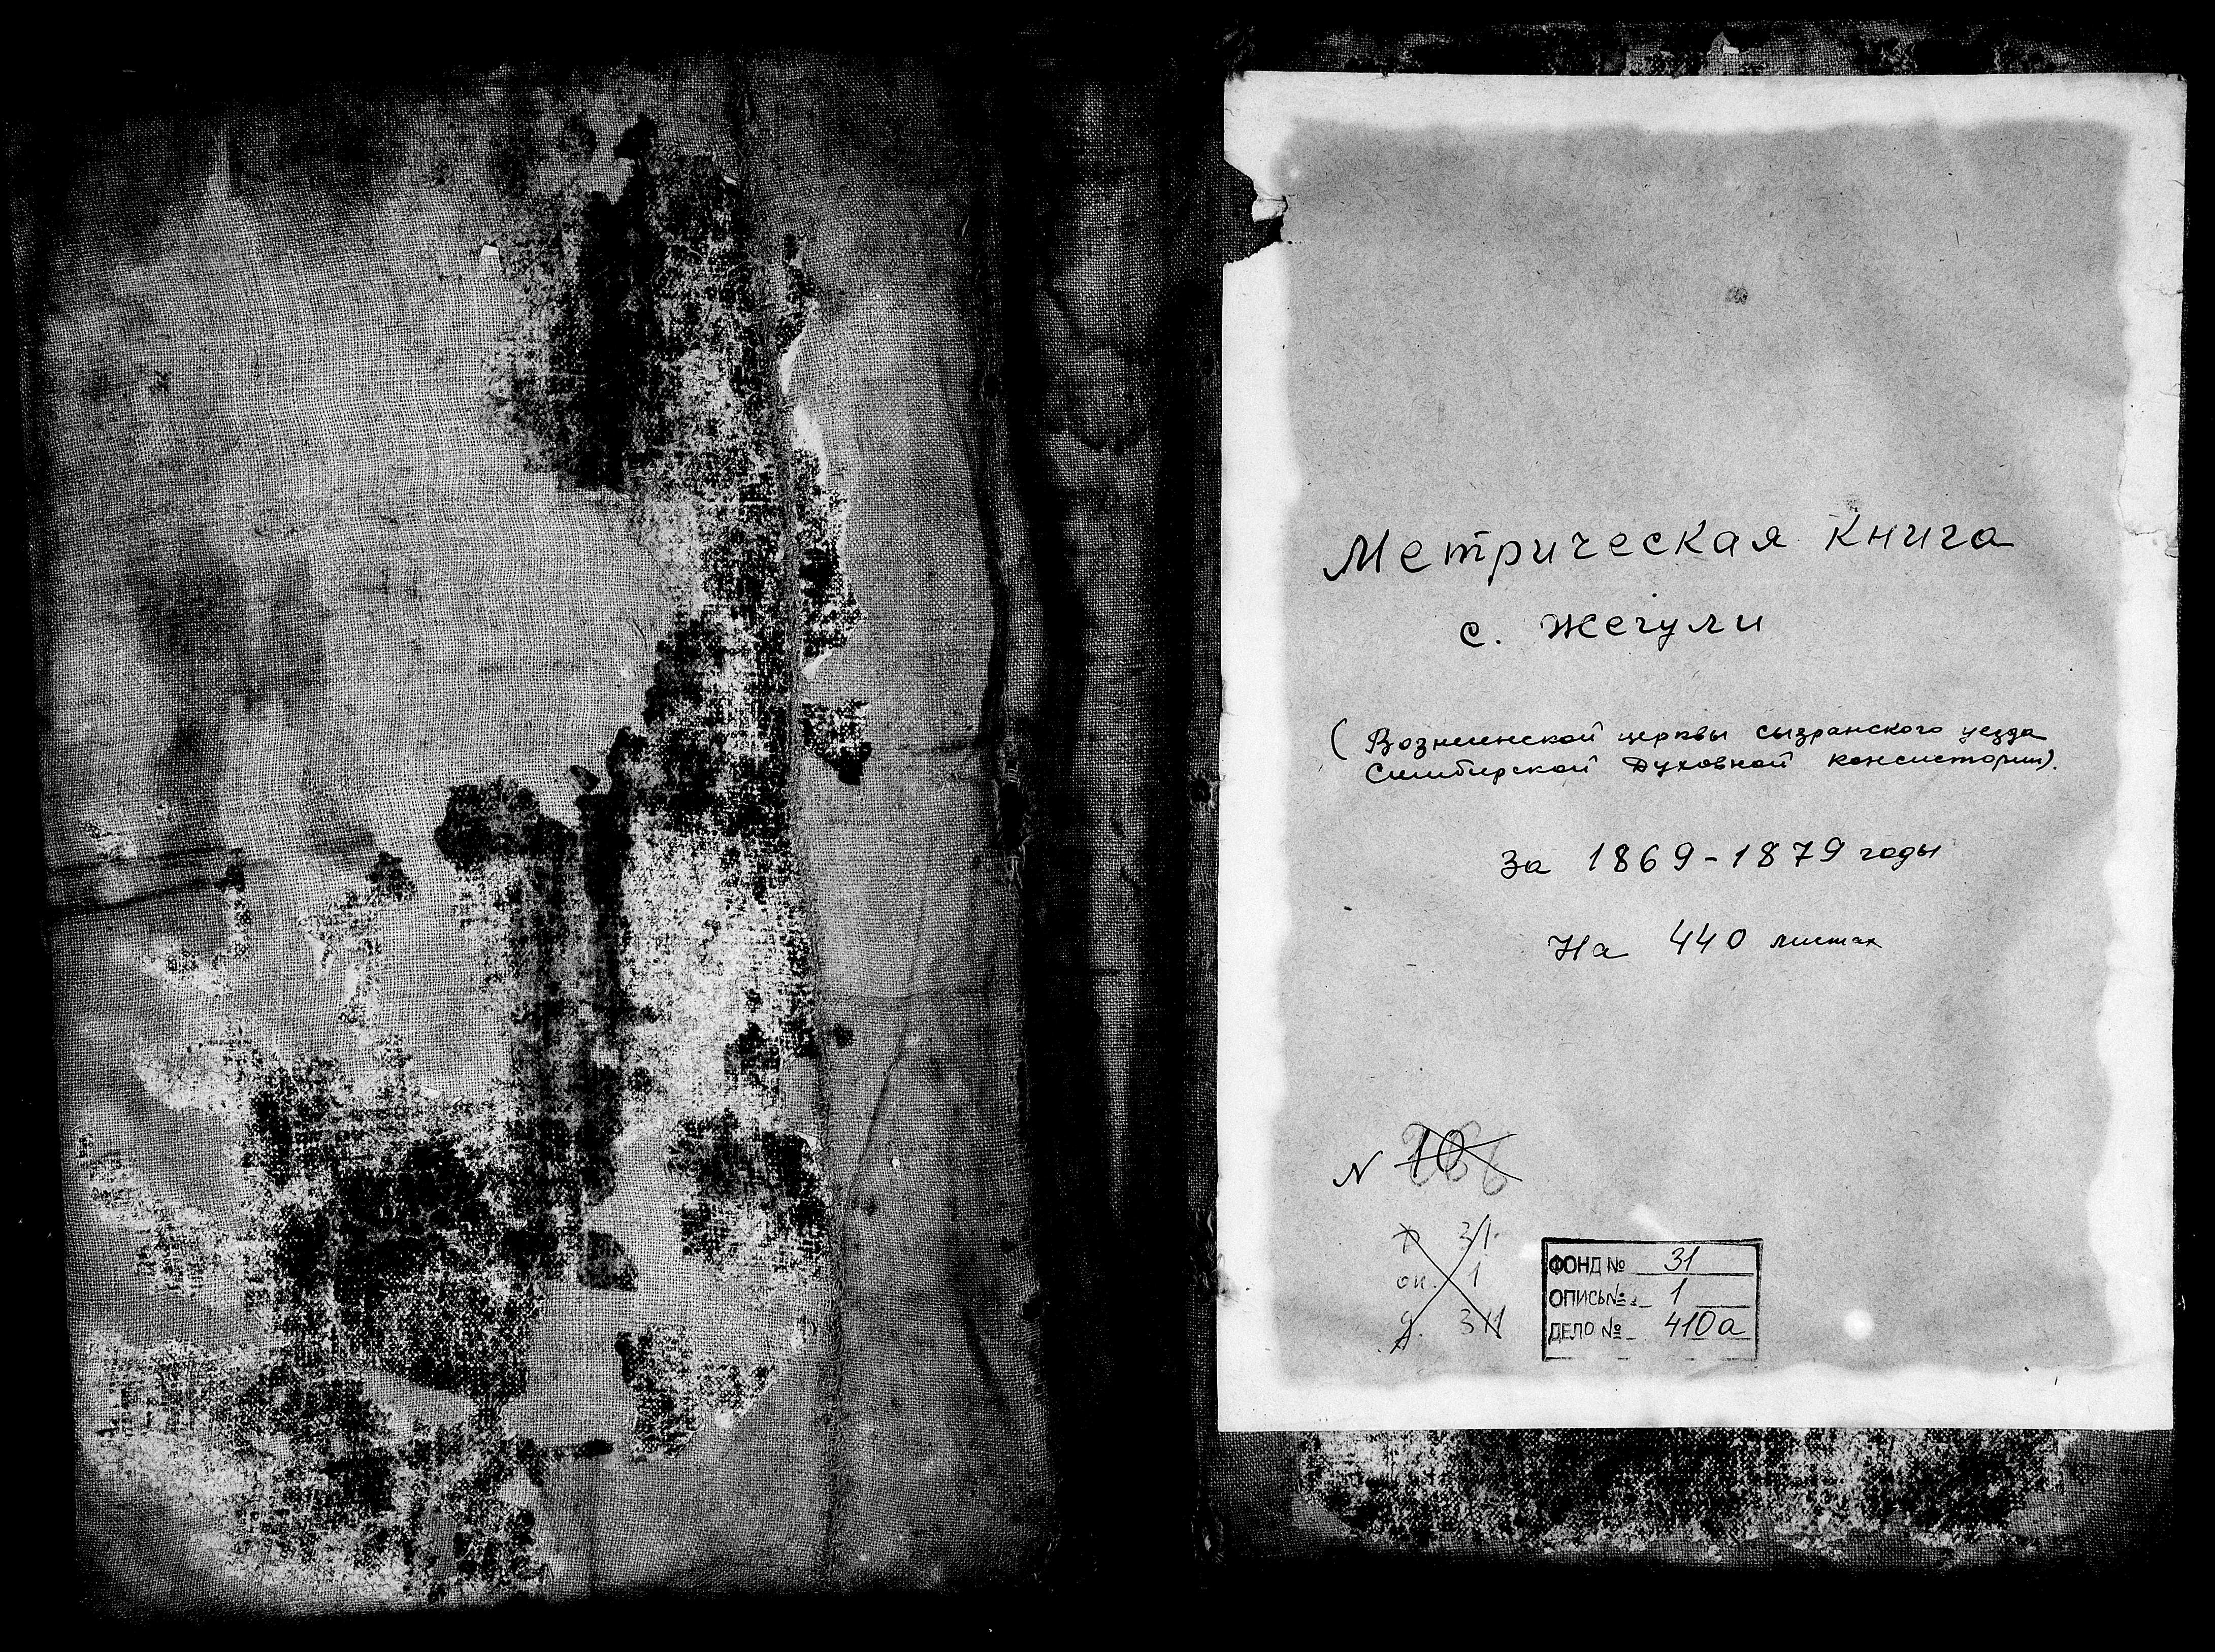 Метрическая книга
с. Жегули
(Вознеинской церквы Сызранского уезда
Симбирской Духовной консистории).
За 1869-1879 годы
На 440 листах
N 10
ф 31
оп. 1
д. 311
ФОНД № 31
ОПИСЬ № 1
ДЕЛО № 410а